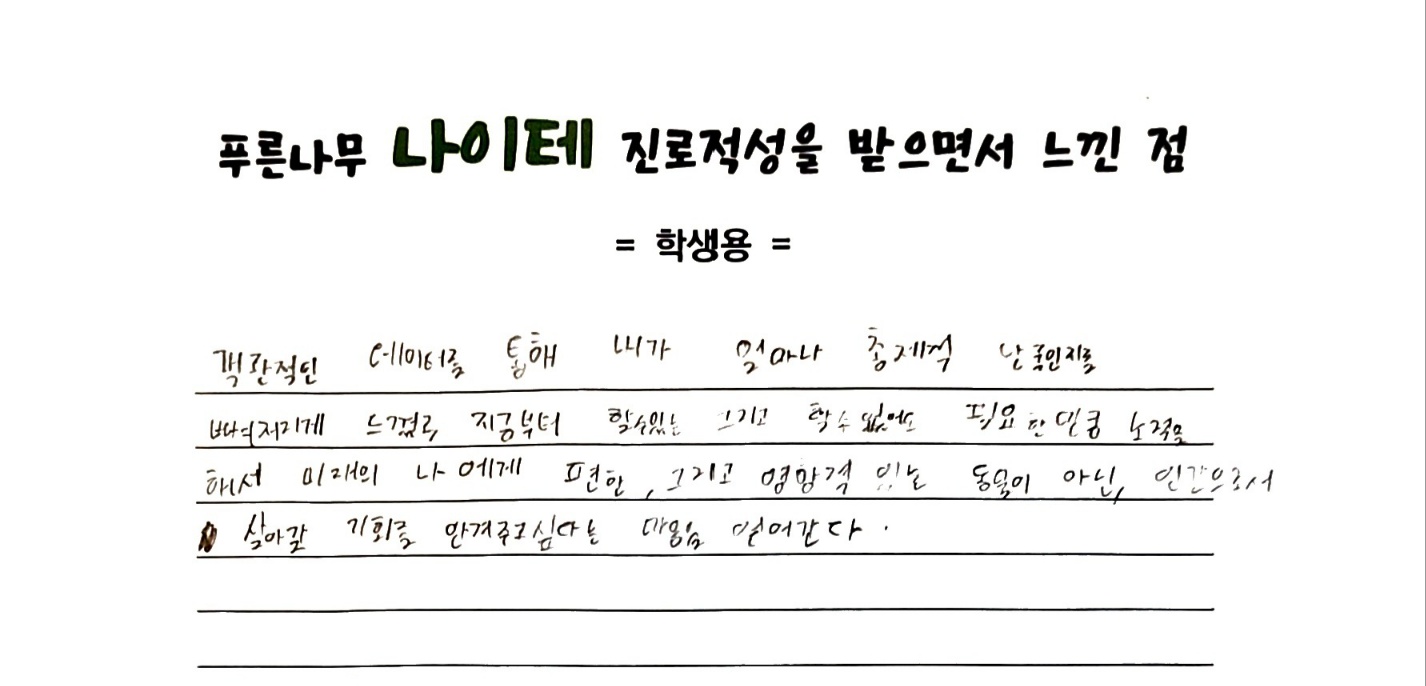 푸른나무 나이테 진로적성을 받으면서 느낀 점
= 학생용 =
객관적인 데이터를 통해 내가 얼마나 총체적 난국인지를
뼈저리게 느꼈고 지금부터 할수있는 그리고 할수 없어도 필요한만큼 노력을
해서 미래의 나에게 편한, 그리고 영향력 있는 동물이 아닌, 인간으로서
살아갈 기회를 안겨주고싶다는 마음을 얻어간다.